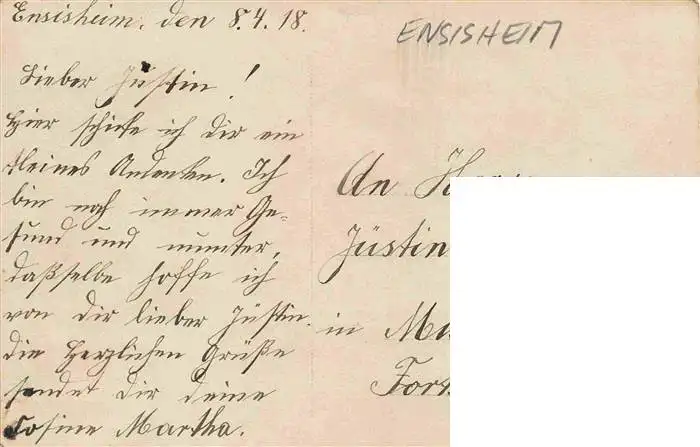 Ensisheim, den 8.4.18.
ENSISHEIM
Lieber Jüstin!
Hier schicke ich Dir ein
kleines Andenken. Ich
bin noch immer Ge-
sund und munter,
daßselbe hoffe ich
von dir lieber Jüstin.
die Herzlichen Grüße
sendet Dir deine
Cosine Martha.
An
Jüstin
in